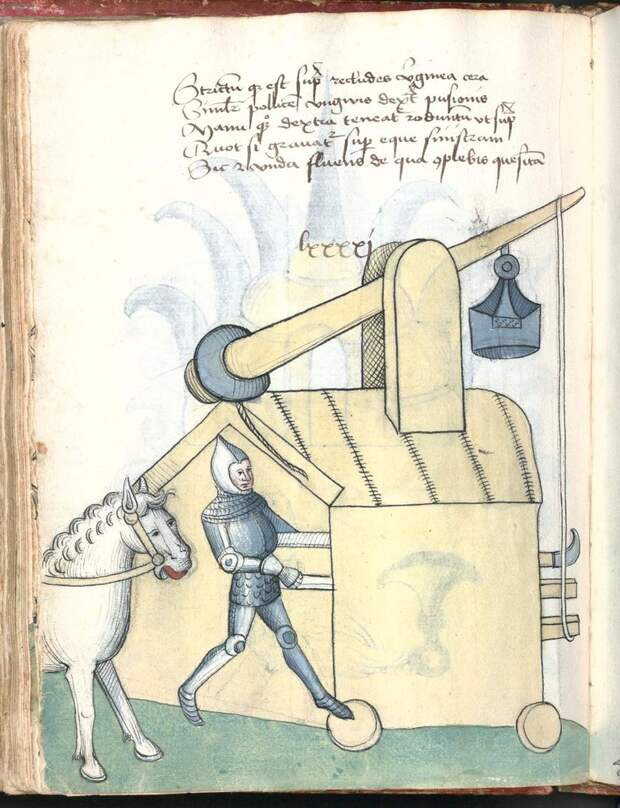 Strictu q est sup recludes vginea cera
Similr pollice ungwis dext pusionis
Manu q dextra teneat roduntu vt sup
Quot si grauat sup eque sinistram
Sic vnda fluens de qua ꝯplebis quesita
lxxxxi